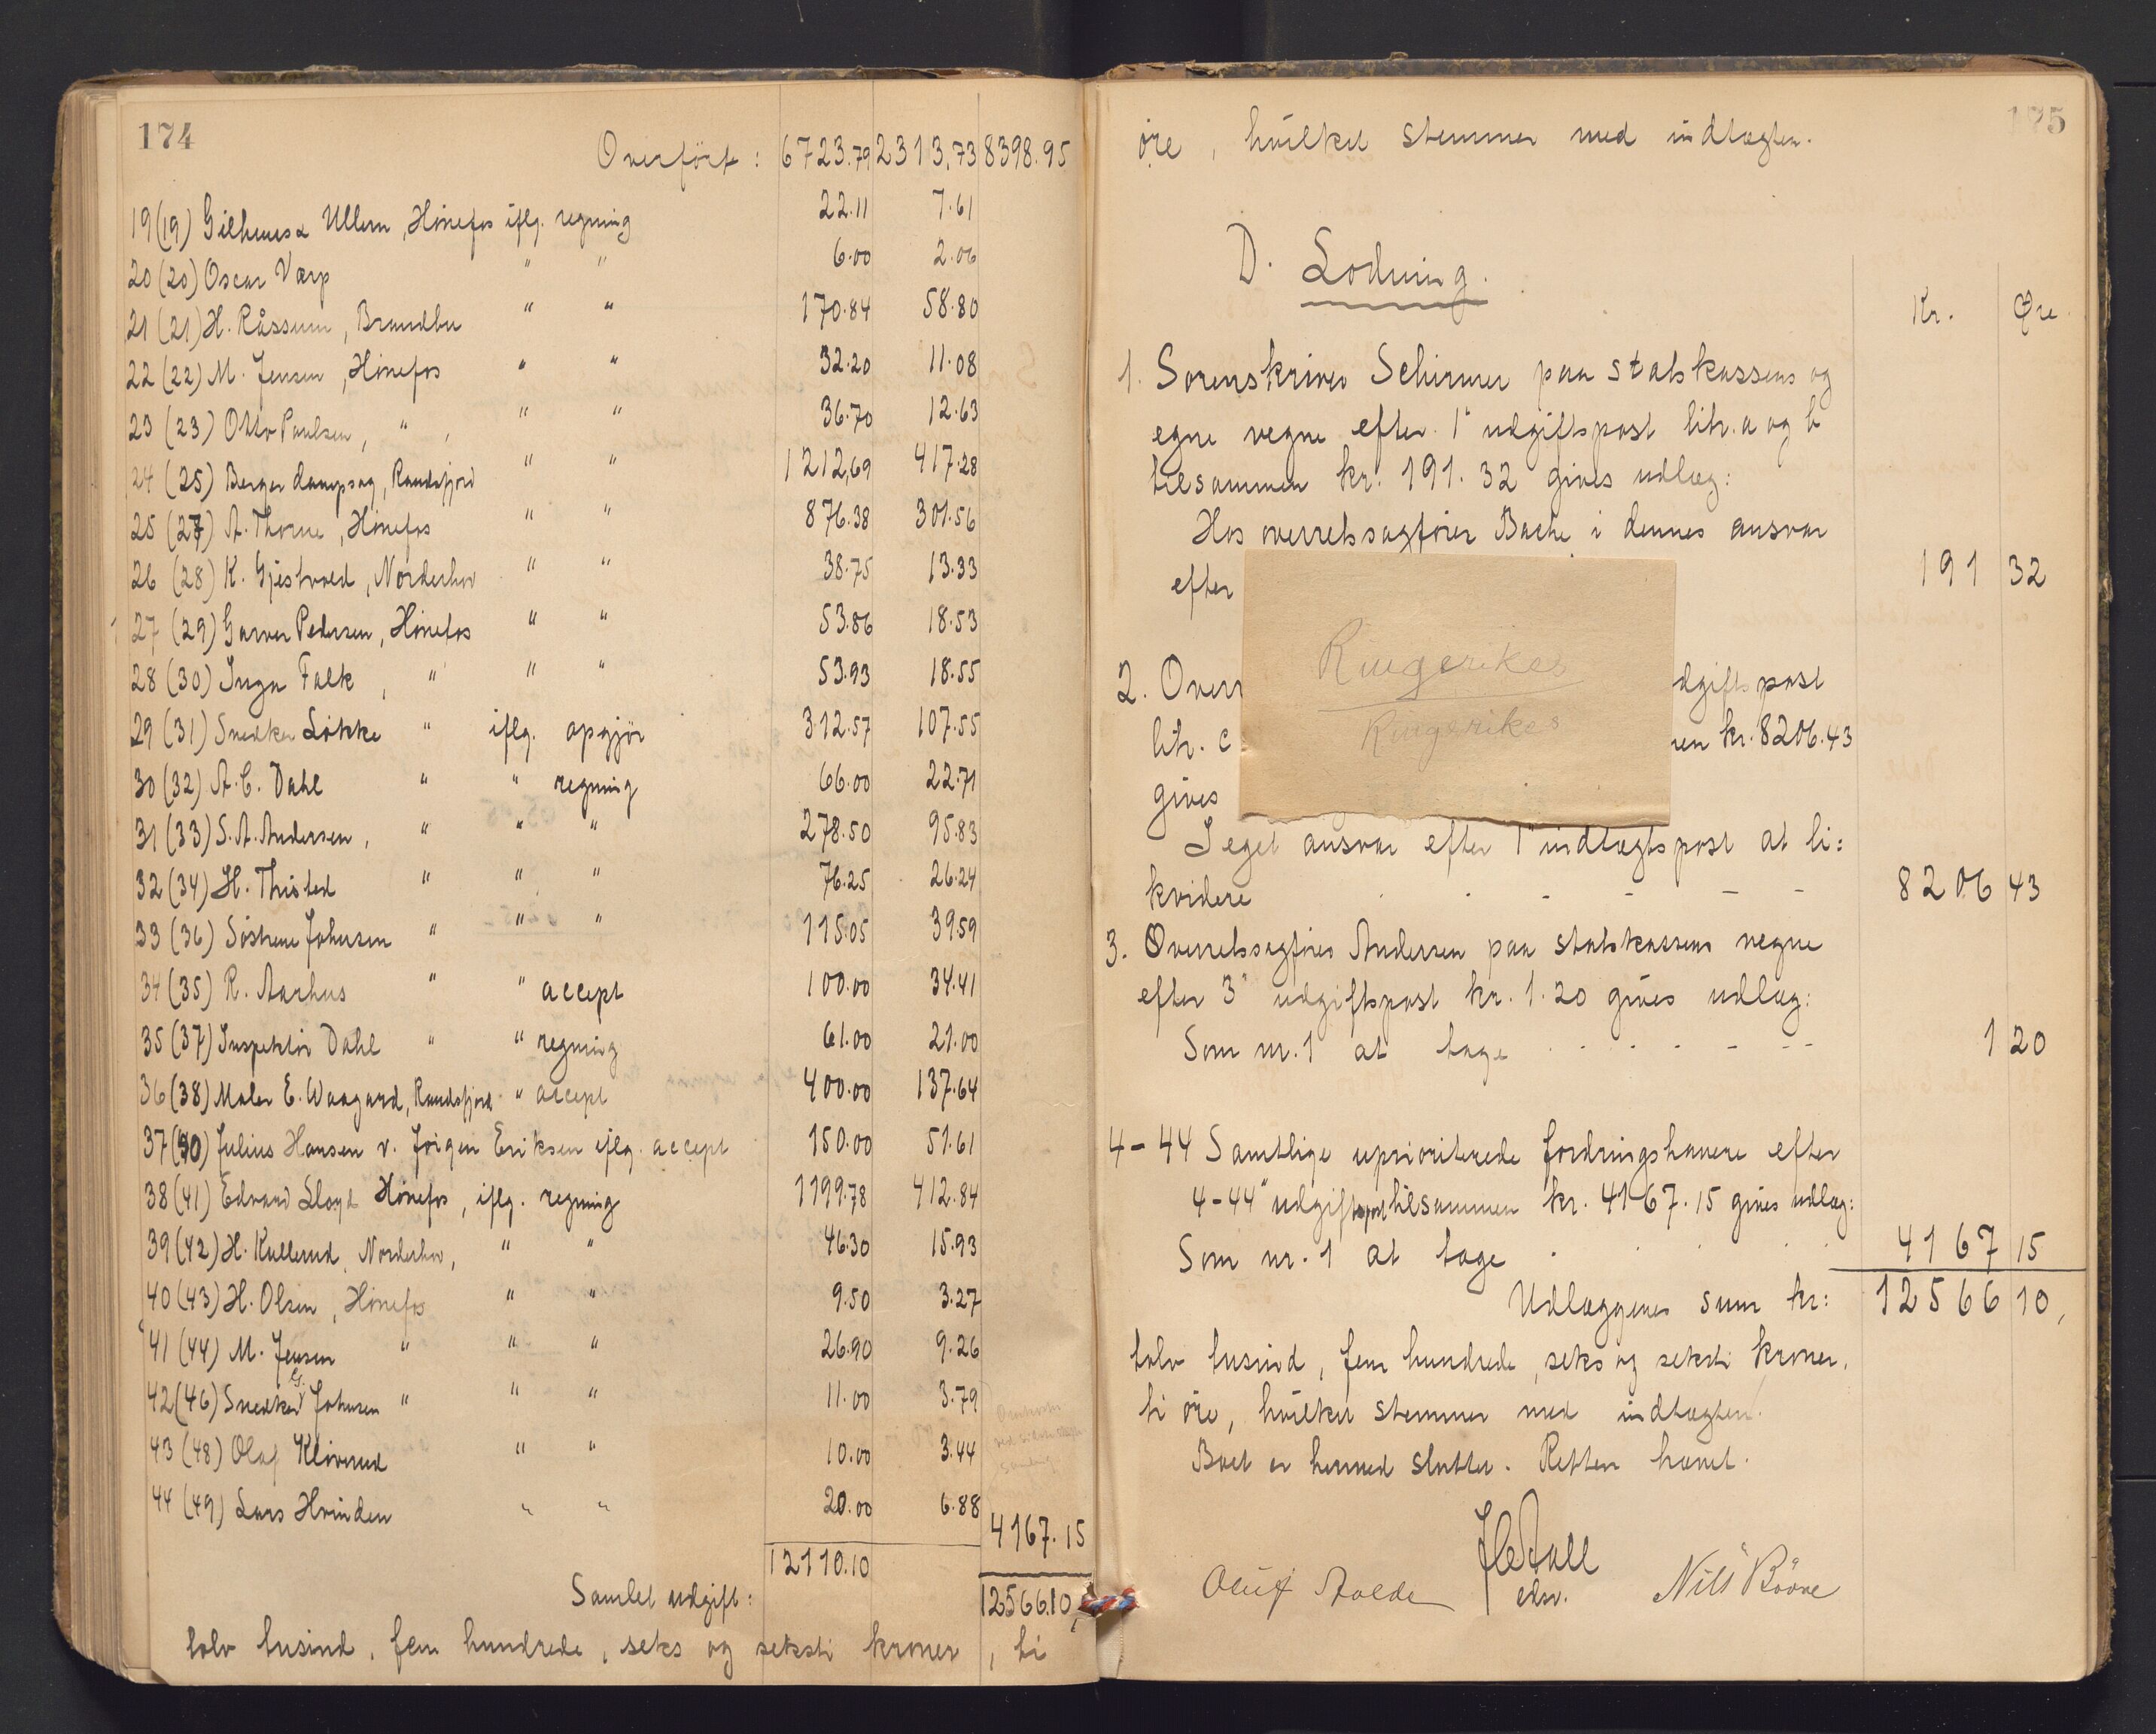 174
Overført: 6723.79 2313.73 8398.95
19 (19) Gilhuus & Ullern, Hønefos iflg. regning 22.11 7.61
20 (20) Oscar Værp " " 6.00 2.06
21 (21) H. Råssum, Brandbu " " 170.84 58.80
22 (22) M. Jensen, Hønefos " " 32.20 11.08
23 (23) Otto Paulsen, " , " " 36.70 12.63
24 (25) Berger dampsag, Randsfjord " " 1212,69 417.28
25 (27) A. Thorne, Hønefos " " 876.38 301.56
26 (28) K. Gjestvold, Norderhov " " 38.75 13.33
27 (29) Garver Pedersen, Hønefos " " 53.86 18.53
28 (30) Inga Falk, " " " 53.93 18.55
29 (31) Snedker Løkke " iflg. opgjør 312.57 107.55
30 (32) A. C. Dahl " " regning 66.00 22.71
31 (33) S. A. Andersen, " " " 278.50 95.83
32 (34) H. Thisted " " " 76.25 26.24
33 (36) Søstrene Johnsen " " " 115.05 39.59
34 (35) R. Aarhus " " accept 100.00 34.41
35 (37) Inspektør Dahl " " regning 61.00 21.00
36 (38) Maler E. Waagaard, Randsfjord " accept 400.00 137.64
37 (40) Julius Hansen v. Jørgen Eriksen iflg. accept 150.00 51.61
38 (41) Edvard Lloyd Hønefos, iflg. regning 1199.78 412.84
39 (42) H. Kullerud, Norderhov, " " 46.30 15.93
40 (43) H. Olsen, Hønefos " " 9.50 3.27
41 (44) M. Jensen " " " 26.90 9.26
42 (46) Snedker G. Johnsen " " " 11.00 3.79
43 (48) Olaf Kløvrud " " 10.00 3.44
44 (49) Lars Hvinden " " 20.00 6.88
4167.15
12110.10
Samlet udgift: 12566.10,
tolv tusind, fem hundrede, seks og seksti kroner, ti
175
øre, hvilket stemmer med indtægten.
D. Lodning.
Kr. Øre.
1. Sorenskriver Schirmer paa statskassens og
egne vegne efter 1" udgiftspost litr. a og b
tilsammen kr. 191.32 gives udlæg:
Hos overretssagfører Bache i dennes ansvar
efter 191 32
Ringerikes
Ringerikes
2. Overr dgiftspost
litr. c en kr. 8206.43
gives
I eget ansvar efter 1" indtægtspost at li=
kvidere - - - - - 8206 43
3. Overretssagfører Andersen paa statskassens vegne
efter 3" udgiftspost kr. 1.20 gives udlæg:
Som nr. 1 at tage - - - - - 1 20
4-44 Samtlige uprioriterede fordringshavere efter
4-44" udgiftspost tilsammen kr. 4167.15 gives udlæg:
Som nr. 1 at tage . . . . 4167 15
Udlæggenes sum kr: 12566 10,
tolv tusind, fem hundrede, seks og seksti kroner,
ti øre, hvilket stemmer med indtægten.
Boet er hermed sluttet. Retten hævet.
edsv.
Oluf Nils